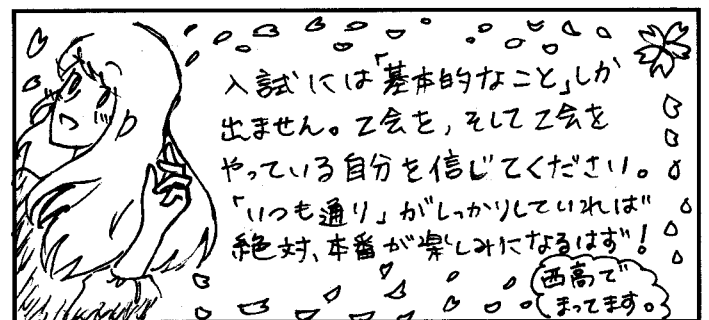 入試には「基本的なこと」しか
出ません。Z会を，そしてZ会を
やっている自分を信じてください。
「いつも通り」がしっかりしていれば
絶対、本番が楽しみになるはず！
西高で
まってます。